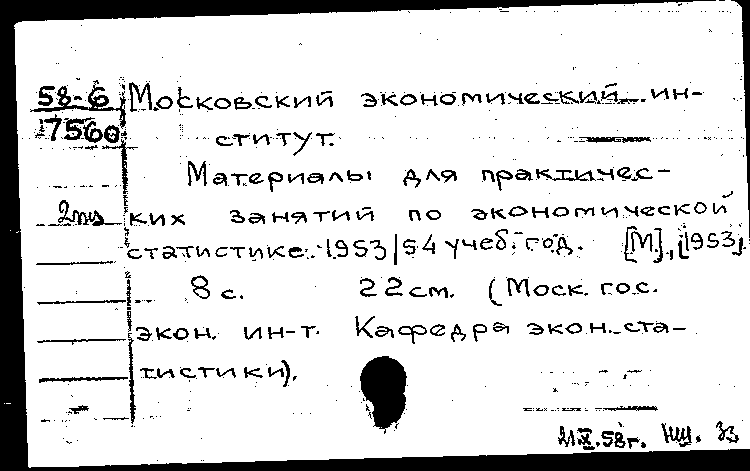 58-6 Московский экономический ин-
7560 ститут.
Материалы для практичес-
ких занятий по экономической
статистике. 1953/54 учеб. год. [М], [1953].
8 с. 22 см. (Моск. гос.
экон. ин-т. Кафедра экон. ста-
тистики).
58г.